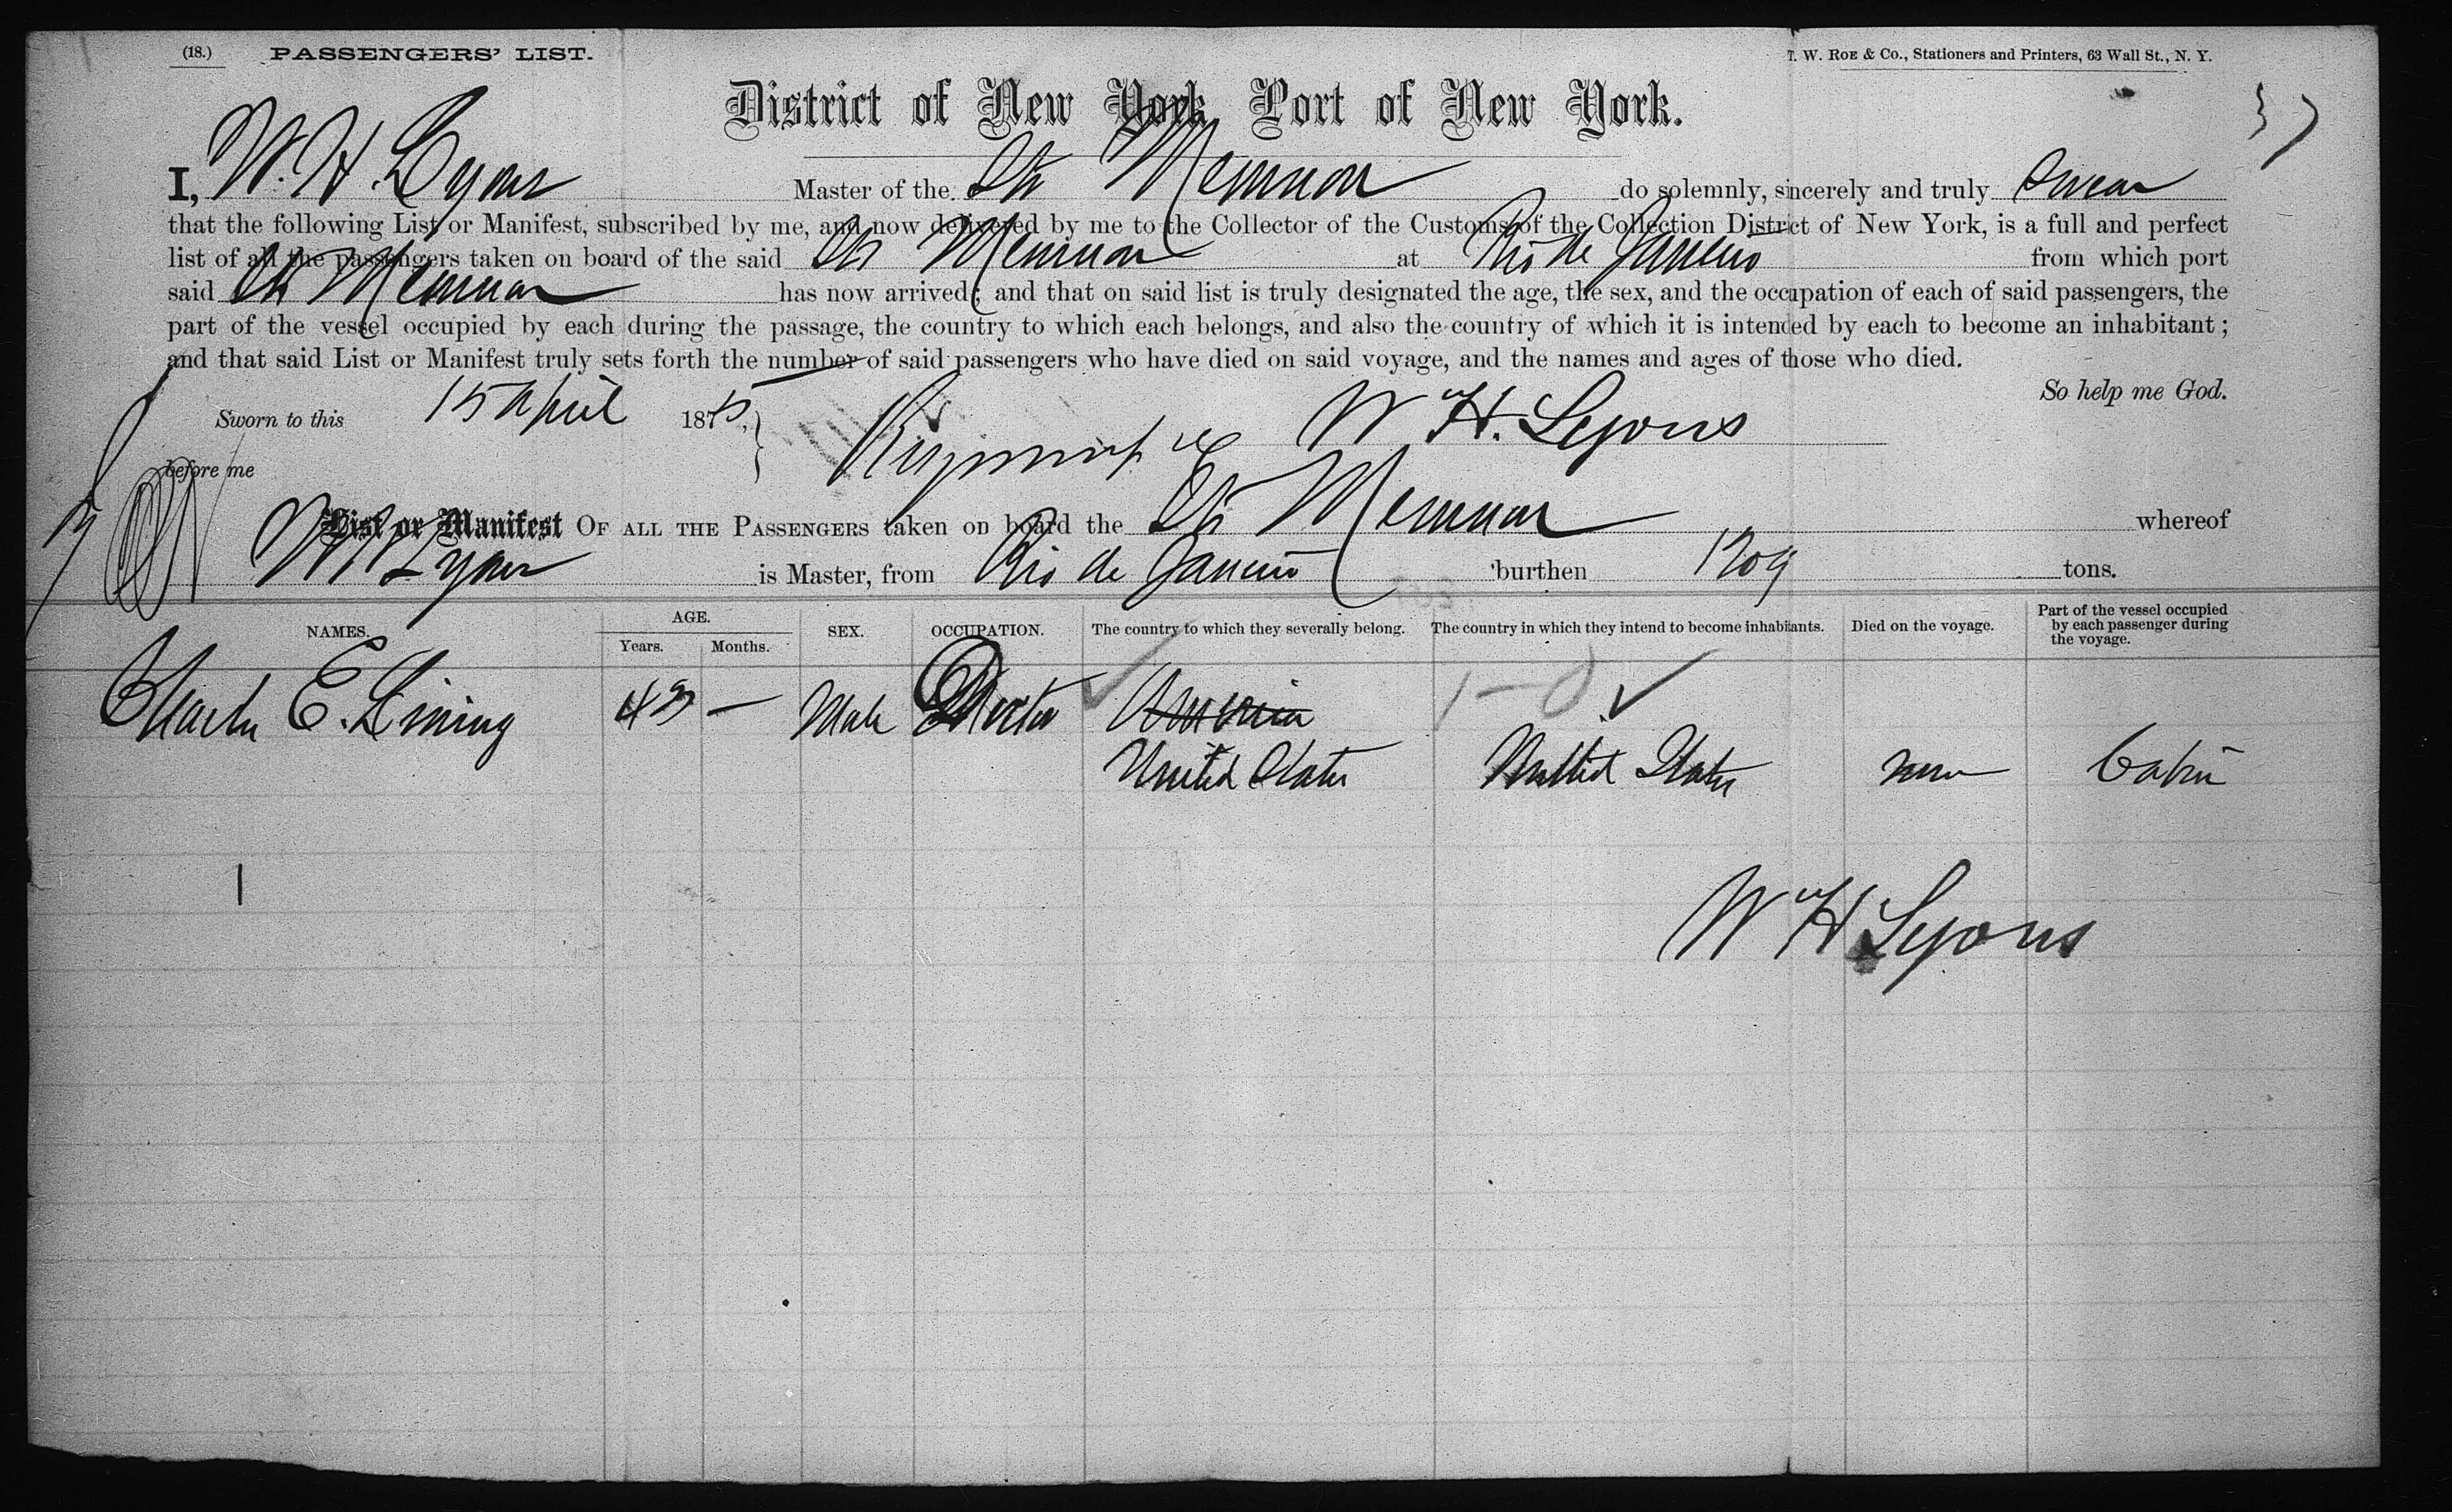 (18.) PASSENGERS' LIST. T. W. ROE & Co., Stationers and Printers, 63 Wall St., N. Y.
District of New York Port of New York. 37
I, W. H. Lyons Master of the Str Memnon do solemnly, sincerely and truly Swear
that the following List or Manifest, subscribed by me, and now delivered by me to the Collector of the Customs of the Collection District of New York, is a full and perfect
list of all the passengers taken on board of the said Str Memnon at Rio de Janeiro from which port
said Str Memnon has now arrived; and that on said list is truly designated the age, the sex, and the occupation of each of said passengers, the
part of the vessel occupied by each during the passage, the country to which each belongs, and also the country of which it is intended by each to become an inhabitant;
and that said List or Manifest truly sets forth the number of said passengers who have died on said voyage, and the names and ages of those who died.
So help me God.
Sworn to this 15 April 1875, W. H. Lyons
before me
List or Manifest OF ALL THE PASSENGERS taken on board the Str Memnon whereof
W H Lyons is Master, from Rio de Janeiro burthen 1209 tons.
NAMES. AGE. Years. Months. SEX. OCCUPATION. The country to which they severally belong. The country in which they intend to become inhabitants. Died on the voyage. Part of the vessel occupied by each passenger during the voyage.
Charles E. Lining — Male Doctor America
United States United States none Cabin
1
W H Lyons